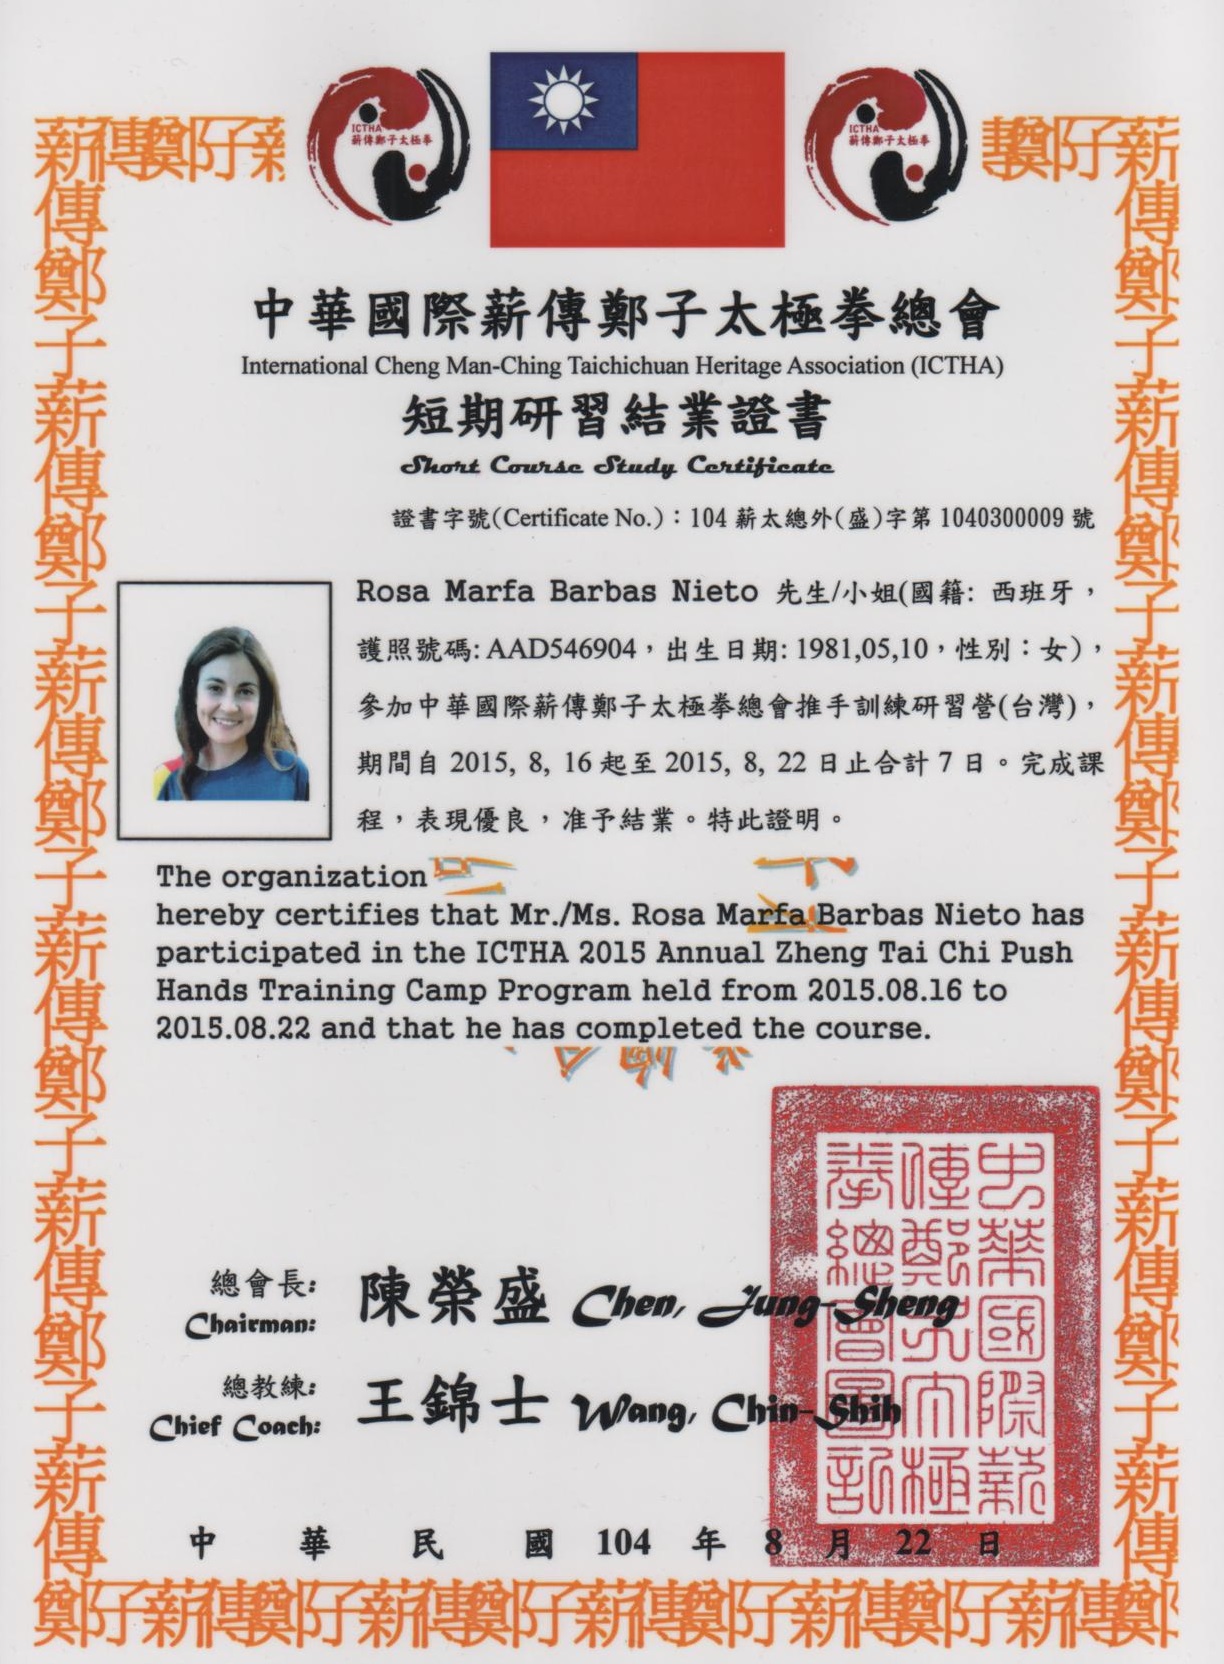 ICTHA
薪傳鄭子太極拳
ICTHA
薪傳鄭子太極拳
中華國際薪傳鄭子太極拳總會
International Cheng Man-Ching Taichichuan Heritage Association (ICTHA)
短期研習結業證書
Short Course Study Certificate
證書字號(Certificate No.)：104 薪太總外(盛)字第 1040300009 號
Rosa Marfa Barbas Nieto 先生/小姐(國籍: 西班牙，
護照號碼: AAD546904，出生日期: 1981,05,10，性別：女)，
參加中華國際薪傳鄭子太極拳總會推手訓練研習營(台灣)，
期間自 2015, 8, 16 起至 2015, 8, 22 日止合計 7 日。完成課
程，表現優良，准予結業。特此證明。
The organization
hereby certifies that Mr./Ms. Rosa Marfa Barbas Nieto has
participated in the ICTHA 2015 Annual Zheng Tai Chi Push
Hands Training Camp Program held from 2015.08.16 to
2015.08.22 and that he has completed the course.
總會長: 陳榮盛 Chen, Jung-Sheng
Chairman:
總教練: 王錦士 Wang, Chin-Shih
Chief Coach:
中華國際薪
傳鄭子太極
拳總會圖記
中華民國 104 年 8 月 22 日